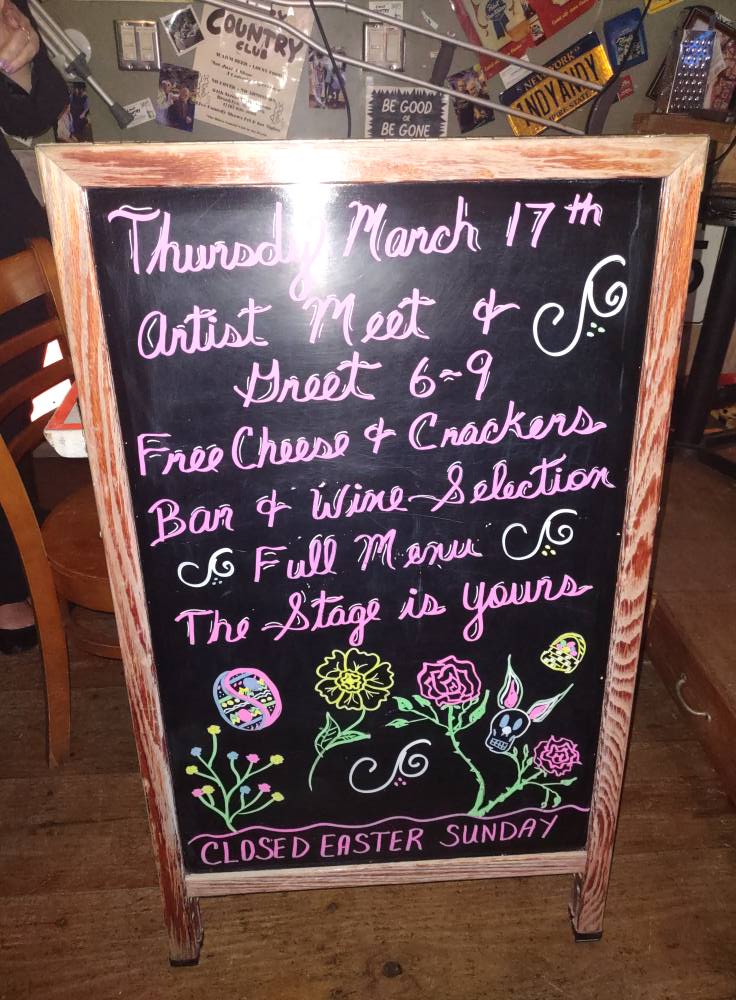 COUNTRY
CLUB
BE GOOD
OR
BE GONE
NEW YORK
ANDYANDY
EMPIRE STATE
Thursday March 17th
Artist Meet &
Greet 6-9
Free Cheese & Crackers
Bar & Wine Selection
Full Menu
The Stage is yours
CLOSED EASTER SUNDAY